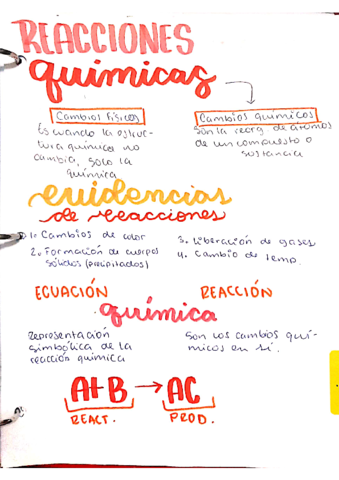 REACCIONES
químicas
Cambios físicos
Es cuando la estruc-
tura química no
cambia, solo la
química
Cambios químicos
son la reorg. de átomos
de un compuesto o
sustancia
evidencias
de reacciones
1. Cambios de color
2. Formación de cuerpos
sólidos (precipitados)
3. Liberación de gases
4. Cambio de temp.
ECUACIÓN
REACCIÓN
química
Representación
simbólica de la
reacción química
Son los cambios quí-
micos en sí.
A+B → AC
REACT.
PROD.